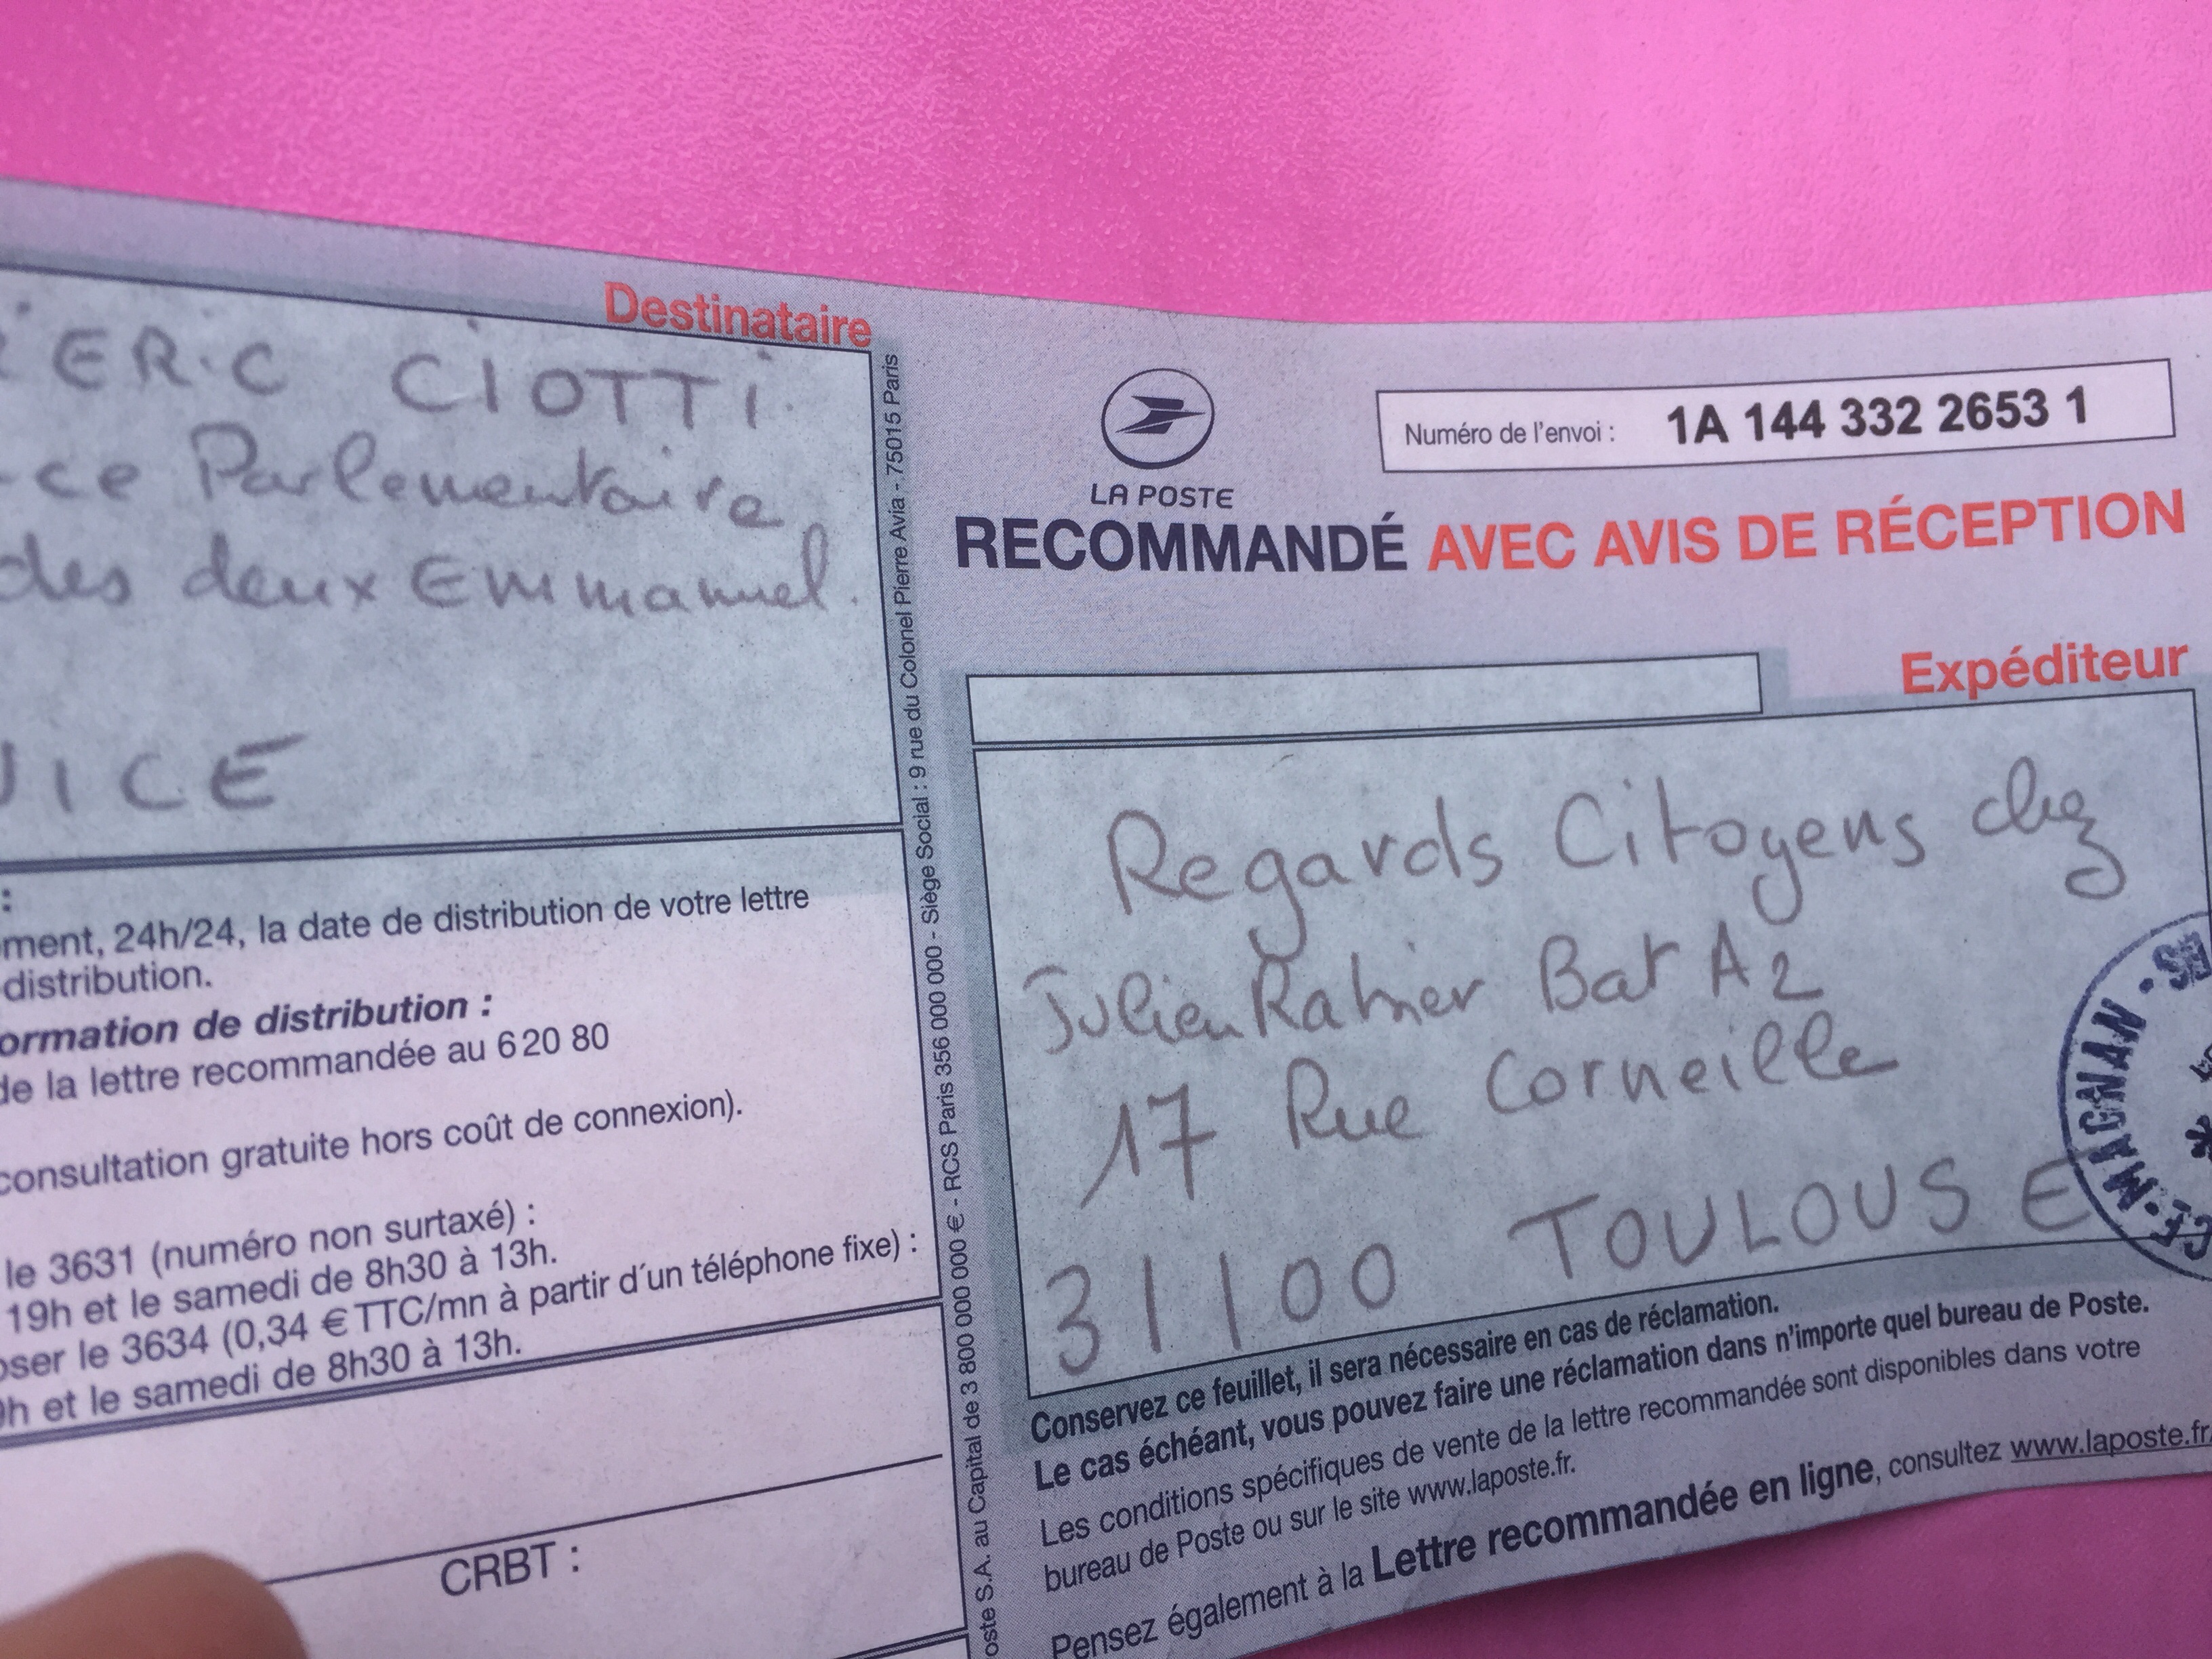 Destinataire
ERIC CIOTTI
Parlementaire
des deux Emmanuel.
:
24h/24, la date de distribution de votre lettre
distribution.
de distribution :
de la lettre recommandée au 6 20 80
consultation gratuite hors coût de connexion).
le 3631 (numéro non surtaxé) :
19h et le samedi de 8h30 à 13h.
le 3634 (0,34 € TTC/mn à partir d'un téléphone fixe) :
et le samedi de 8h30 à 13h.
CRBT :
S.A. au Capital de 3 800 000 000 € - RCS Paris 356 000 000 - Siège Social : 9 rue du Colonel Pierre Avia - 75015 Paris
LA POSTE
Numéro de l'envoi : 1A 144 332 2653 1
RECOMMANDÉ AVEC AVIS DE RÉCEPTION
Expéditeur
Regards Citoyens chez
Julien Rabier Bat A2
17 Rue Corneille
31100 TOULOUSE
MAGNAN
Conservez ce feuillet, il sera nécessaire en cas de réclamation.
Le cas échéant, vous pouvez faire une réclamation dans n'importe quel bureau de Poste.
Les conditions spécifiques de vente de la lettre recommandée sont disponibles dans votre
bureau de Poste ou sur le site www.laposte.fr.
Pensez également à la Lettre recommandée en ligne, consultez www.laposte.fr/